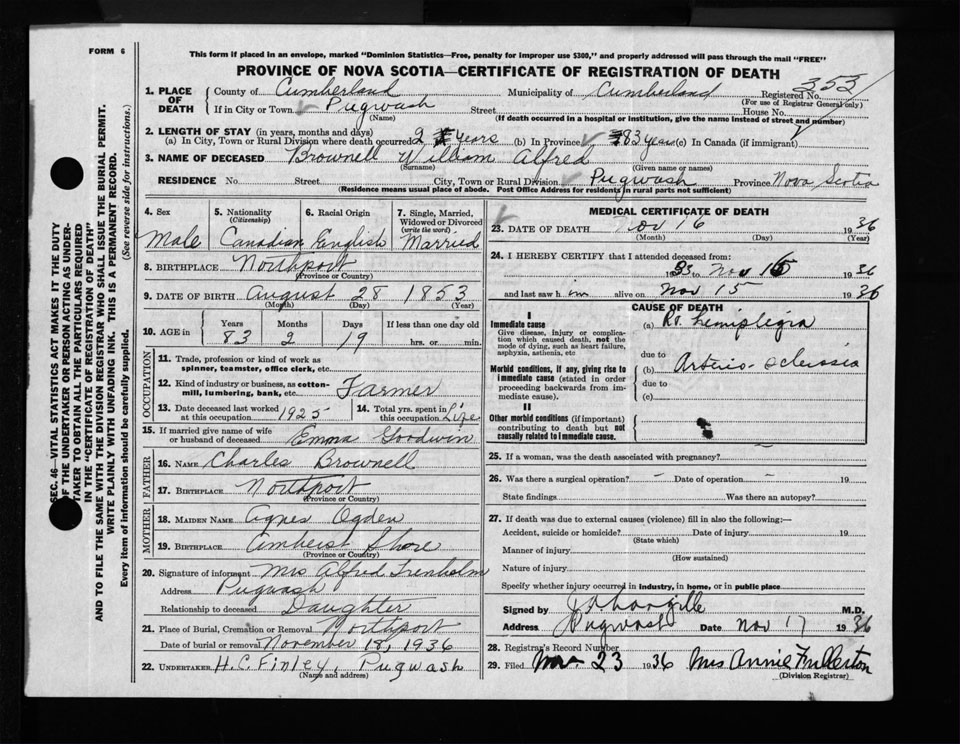 FORM 6
This form if placed in an envelope, marked "Dominion Statistics—Free, penalty for improper use $300," and properly addressed will pass through the mail "FREE"
PROVINCE OF NOVA SCOTIA—CERTIFICATE OF REGISTRATION OF DEATH
1. PLACE OF DEATH County of Cumberland Municipality of Cumberland Registered No. 353
(For use of Registrar General only)
If in City or Town Pugwash Street House No.
(Name) (If death occurred in a hospital or institution, give the name instead of street and number)
2. LENGTH OF STAY (in years, months and days)
(a) In City, Town or Rural Division where death occurred 2 years (b) In Province 83 years (c) In Canada (if immigrant)
3. NAME OF DECEASED Brownell William Alfred
(Surname) (Given name or names)
RESIDENCE No. Street City, Town or Rural Division Pugwash Province Nova Scotia
(Residence means usual place of abode. Post Office Address for residents in rural parts not sufficient)
4. Sex Male
5. Nationality (Citizenship) Canadian
6. Racial Origin English
7. Single, Married, Widowed or Divorced (write the word) Married
8. BIRTHPLACE Northport
(Province or Country)
9. DATE OF BIRTH August 28 1853
(Month) (Day) (Year)
10. AGE in Years 83 Months 2 Days 19 If less than one day old hrs. or min.
OCCUPATION
11. Trade, profession or kind of work as spinner, teamster, office clerk, etc.
12. Kind of industry or business, as cotton-mill, lumbering, bank, etc. Farmer
13. Date deceased last worked at this occupation 1925
14. Total yrs. spent in this occupation Life
15. If married give name of wife or husband of deceased Emma Goodwin
FATHER
16. NAME Charles Brownell
17. BIRTHPLACE Northport
(Province or Country)
MOTHER
18. MAIDEN NAME Agnes Ogden
19. BIRTHPLACE Amherst Shore
(Province or Country)
20. Signature of informant Mrs Alfred Trenholm
Address Pugwash
Relationship to deceased Daughter
21. Place of Burial, Cremation or Removal Northport
Date of burial or removal November 18, 1936
22. UNDERTAKER H.C. Finley, Pugwash
(Name and address)
MEDICAL CERTIFICATE OF DEATH
23. DATE OF DEATH Nov 16 1936
(Month) (Day) (Year)
24. I HEREBY CERTIFY that I attended deceased from:
1933 to Nov 16 1936
and last saw him alive on Nov 15 1936
CAUSE OF DEATH
I
Immediate cause
Give disease, injury or complication which caused death, not the mode of dying, such as heart failure, asphyxia, asthenia, etc
(a) Rt. hemiplegia
due to
Morbid conditions, if any, giving rise to immediate cause (stated in order proceeding backwards from immediate cause).
(b) Arterio-sclerosis
due to
(c)
II
Other morbid conditions (if important) contributing to death but not causally related to immediate cause.
25. If a woman, was the death associated with pregnancy?
26. Was there a surgical operation? – Date of operation – 19
State findings Was there an autopsy?
27. If death was due to external causes (violence) fill in also the following:—
Accident, suicide or homicide? Date of injury 19
(State which)
Manner of injury
(How sustained)
Nature of injury
Specify whether injury occurred in industry, in home, or in public place
Signed by M.D.
Address Pugwash Date Nov 17 1936
28. Registrar's Record Number
29. Filed 23 1936 Mrs Annie Fullerton
(Division Registrar)
SEC. 46—VITAL STATISTICS ACT MAKES IT THE DUTY
OF THE UNDERTAKER OR PERSON ACTING AS UNDER-
TAKER TO OBTAIN ALL THE PARTICULARS REQUIRED
IN THE "CERTIFICATE OF REGISTRATION OF DEATH"
AND TO FILE THE SAME WITH THE DIVISION REGISTRAR WHO SHALL ISSUE THE BURIAL PERMIT.
WRITE PLAINLY WITH UNFADING INK. THIS IS A PERMANENT RECORD.
Every item of information should be carefully supplied. (See reverse side for instructions.)